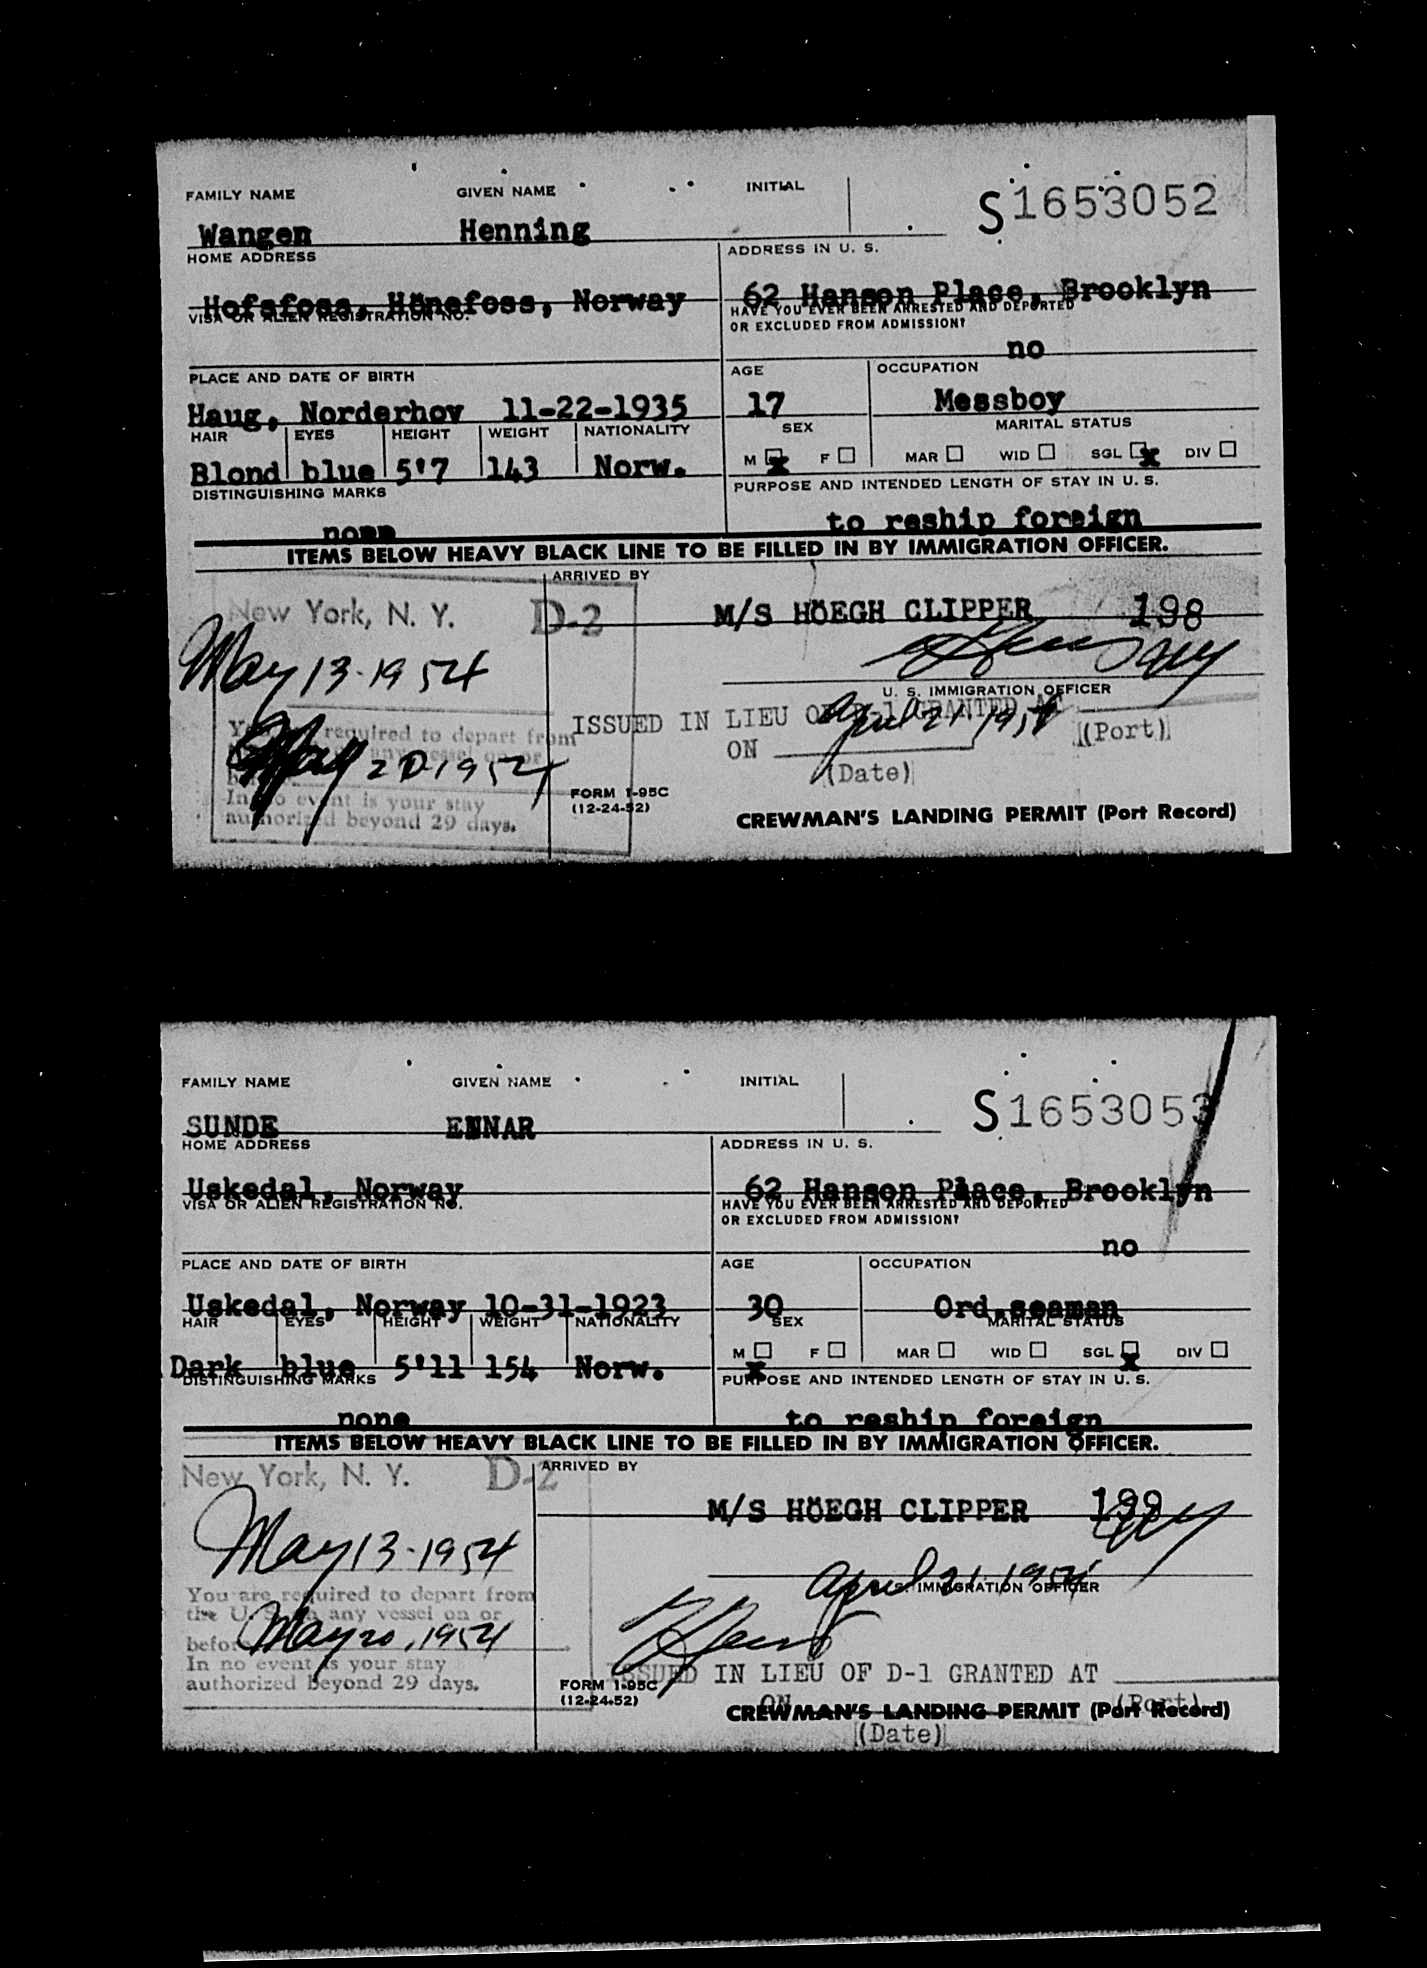 FAMILY NAME GIVEN NAME INITIAL S1653052
Wangen Henning
HOME ADDRESS ADDRESS IN U. S.
Hofsfoss, Hönefoss, Norway 62 Hanson Place, Brooklyn
VISA OR ALIEN REGISTRATION NO. HAVE YOU EVER BEEN ARRESTED AND DEPORTED
OR EXCLUDED FROM ADMISSION?
no
PLACE AND DATE OF BIRTH AGE OCCUPATION
Haug, Norderhov 11-22-1935 17 Messboy
HAIR EYES HEIGHT WEIGHT NATIONALITY SEX MARITAL STATUS
Blond blue 5'7 143 Norw. M x F MAR WID SGL x DIV
DISTINGUISHING MARKS PURPOSE AND INTENDED LENGTH OF STAY IN U. S.
none to reship foreign
ITEMS BELOW HEAVY BLACK LINE TO BE FILLED IN BY IMMIGRATION OFFICER.
ARRIVED BY
New York, N. Y. D-2 M/S HÖEGH CLIPPER 198
May 13-1954
U. S. IMMIGRATION OFFICER
ISSUED IN LIEU OF D-1 GRANTED AT
April 21 1954
You are required to depart from (Port)
any vessel on or ON
May 20 1954 (Date)
In no event is your stay FORM I-95C
authorized beyond 29 days. (12-24-52) CREWMAN'S LANDING PERMIT (Port Record)
FAMILY NAME GIVEN NAME INITIAL S1653053
SUNDE
HOME ADDRESS ADDRESS IN U. S.
Uskedal, Norway 62 Hanson Place, Brooklyn
VISA OR ALIEN REGISTRATION NO. HAVE YOU EVER BEEN ARRESTED AND DEPORTED
OR EXCLUDED FROM ADMISSION?
no
PLACE AND DATE OF BIRTH AGE OCCUPATION
Uskedal, Norway 10-31-1923 30 Ord.seaman
HAIR EYES HEIGHT WEIGHT NATIONALITY SEX MARITAL STATUS
Dark blue 5'11 154 Norw. M x F MAR WID SGL x DIV
DISTINGUISHING MARKS PURPOSE AND INTENDED LENGTH OF STAY IN U. S.
none to reship foreign
ITEMS BELOW HEAVY BLACK LINE TO BE FILLED IN BY IMMIGRATION OFFICER.
New York, N. Y. D-2 ARRIVED BY
M/S HÖEGH CLIPPER 199
May 13-1954
April 21 1954
U. S. IMMIGRATION OFFICER
You are required to depart from
the U. S. on any vessel on or
before May 20, 1954
In no event is your stay ISSUED IN LIEU OF D-1 GRANTED AT
authorized beyond 29 days. FORM I-95C
(12-24-52) ON (Port)
CREWMAN'S LANDING PERMIT (Port Record)
(Date)